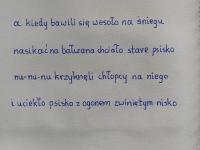 a kiedy bawili się wesoło na śniegu
nasikać na bałwana chciało stare psisko
nu-nu-nu krzyknęli chłopcy na niego
i uciekło psisko z ogonem zwiniętym nisko